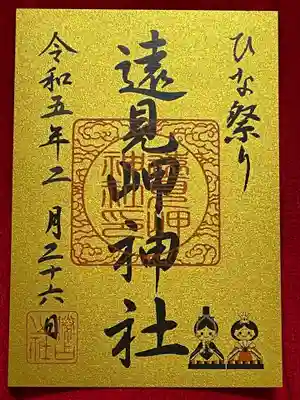 ひな祭り
遠見岬神社
令和五年二月二十六日